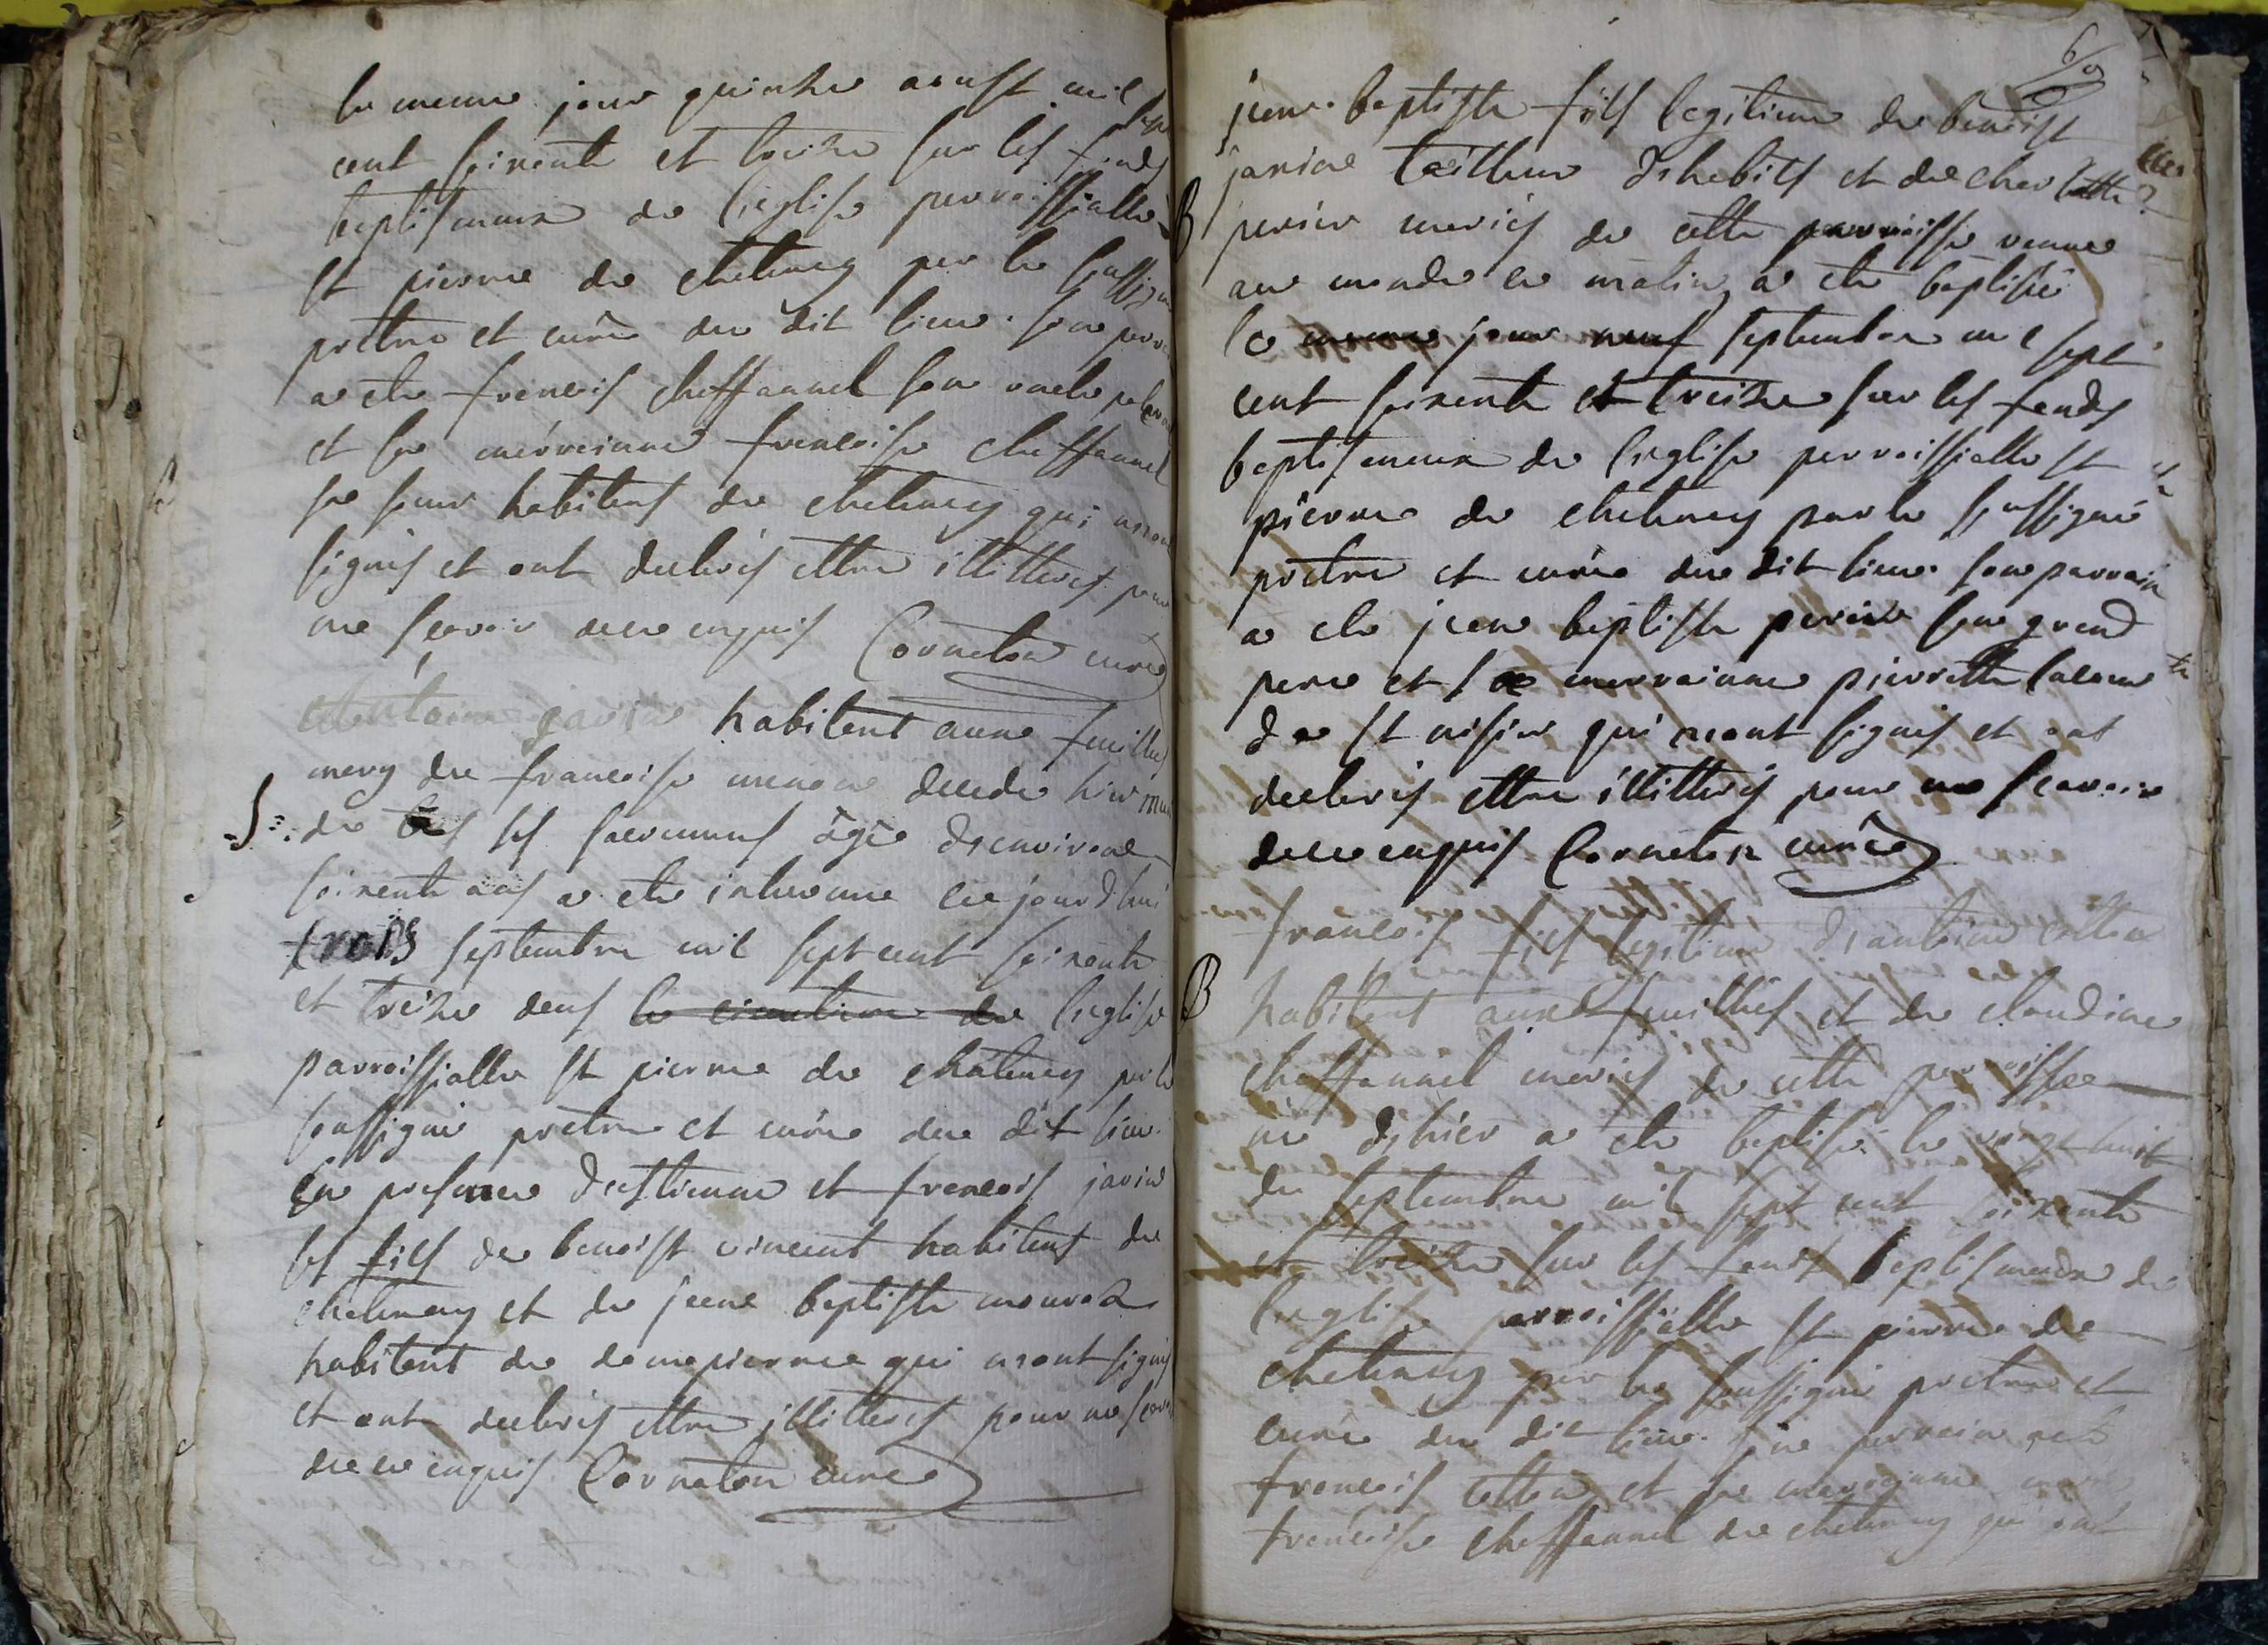 le meme jour quinze aoust mil sept
cent soixente et treize sur les fonds
baptismaux de l'eglise parroissialle
st pierre de chatenay par le soussigné
pretre et curé du dit lieu. son parrein
a eté francois cheffannel son oncle paternel
et sa marreinne francoise cheffannel
sa sœur habitens de chatenay qui n'ont
signés et ont declarés ettre illitterés pour
ne scavoir de ce enquis Cornaton curé
Antoine javin habitent aux feuilles
mary de francoise decedé hier muni
de tous ses sacremens âgé d'environ
soixente ans a eté inhumé ce jourd'hui
trois septembre mil sept cent soixente
et treize dans le cimetiere de l'eglise
parroissialle st pierre de chatenay par le
soussigné pretre et curé du dit lieu.
en presence d'estienne et francois javin
ses fils de benoist vincent habitens de
chatenay et de jean baptiste
habitent de dompierre qui n'ont signés
et ont declarés ettre illitterés pour ne scavoir
de ce enquis Cornaton curé
60
jean baptiste fils legitime de benoist
javin tailleur d'habits et de charlotte
B perier mariés de cette parroisse venu
au monde ce matin a eté baptisé
le meme jour neuf septembre mil sept
cent soixente et treize sur les fonds
baptismaux de l'eglise parroissialle st
pierre de chatenay par le soussigné
pretre et curé du dit lieu. son parrain
a eté jean baptiste perier son grand
pere et sa marrainne pierrette
de st nisier qui n'ont signés et ont
declarés ettre illitterés pour ne scavoir
de ce enquis Cornaton curé
francois fils legitime d'antoine cotton
B habitent aux feuilles et de claudine
cheffannel mariés de cette parroisse
né d'hier a eté baptisé le vingt huit
de septembre mil sept cent soixente
et treize sur les fonds baptismaux de
l'eglise parroissialle st pierre de
chatenay par le soussigné pretre et
curé du dit lieu. son parrein est
francois cotton et sa marreinne
francoise cheffannel de chatenay qui ont